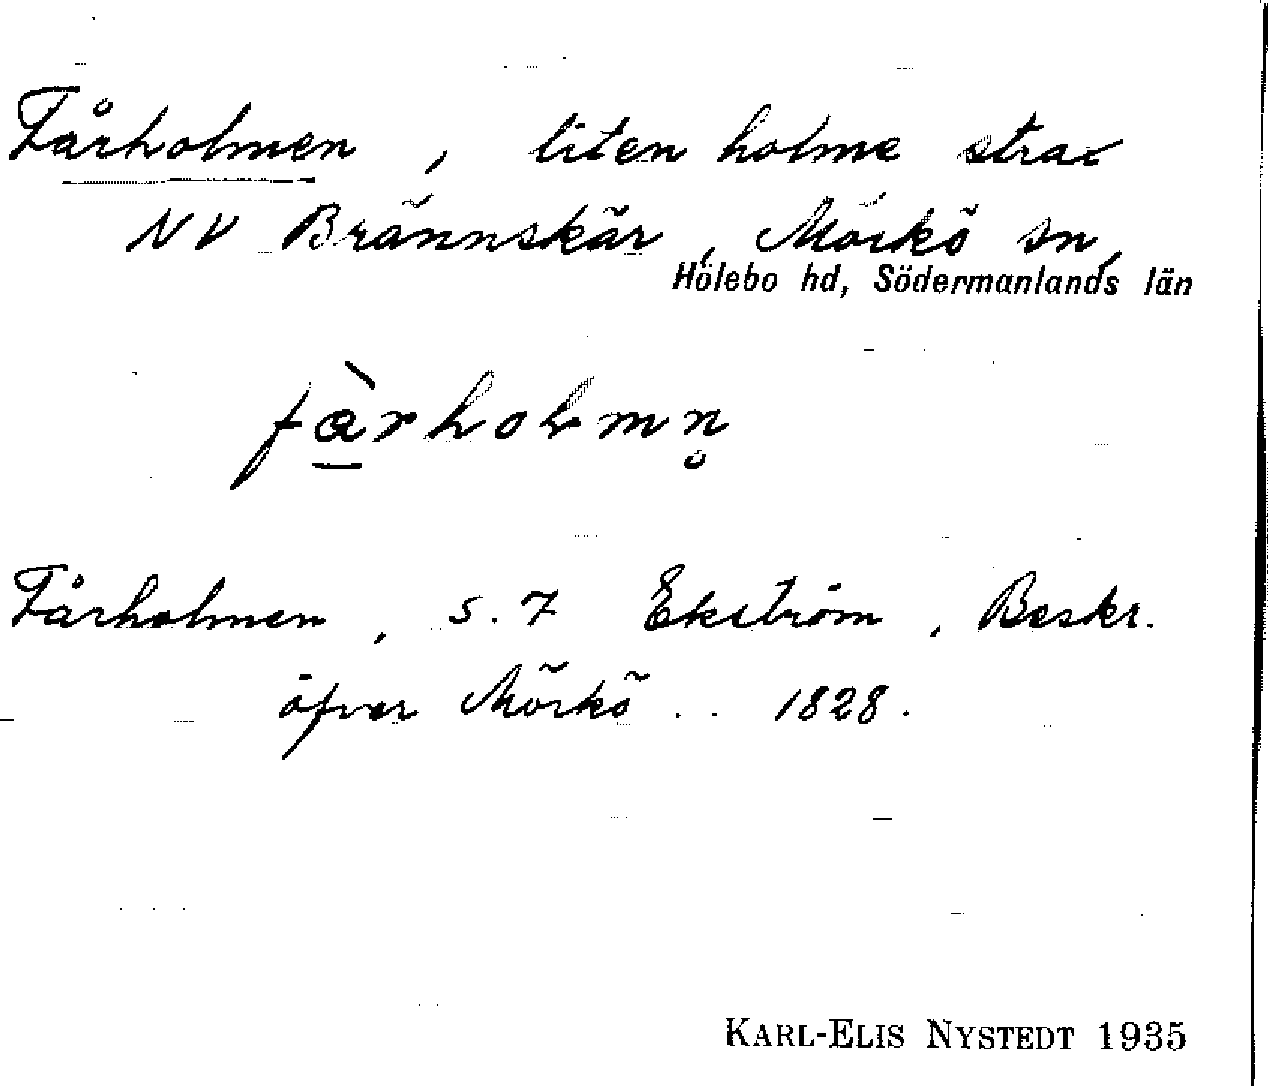 Fårholmen, liten holme strax
NV Brännskär, Mörkö sn,
Hölebo hd, Södermanlands län
fàrholmn̥
Fårholmen, s. 7 Ekström, Beskr.
öfver Mörkö . . 1828.
KARL-ELIS NYSTEDT 1935